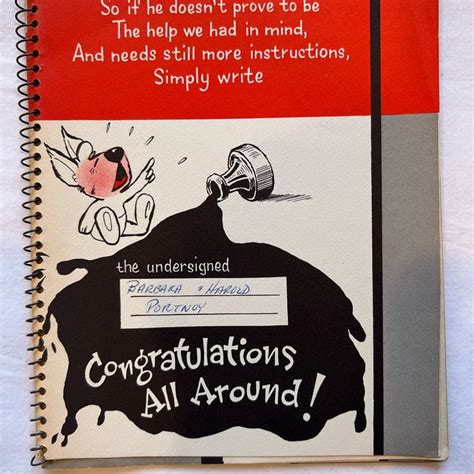 So if he doesn't prove to be
The help we had in mind,
And needs still more instructions,
Simply write
the undersigned
BARBARA & HAROLD
PORTNOY
Congratulations
All Around!